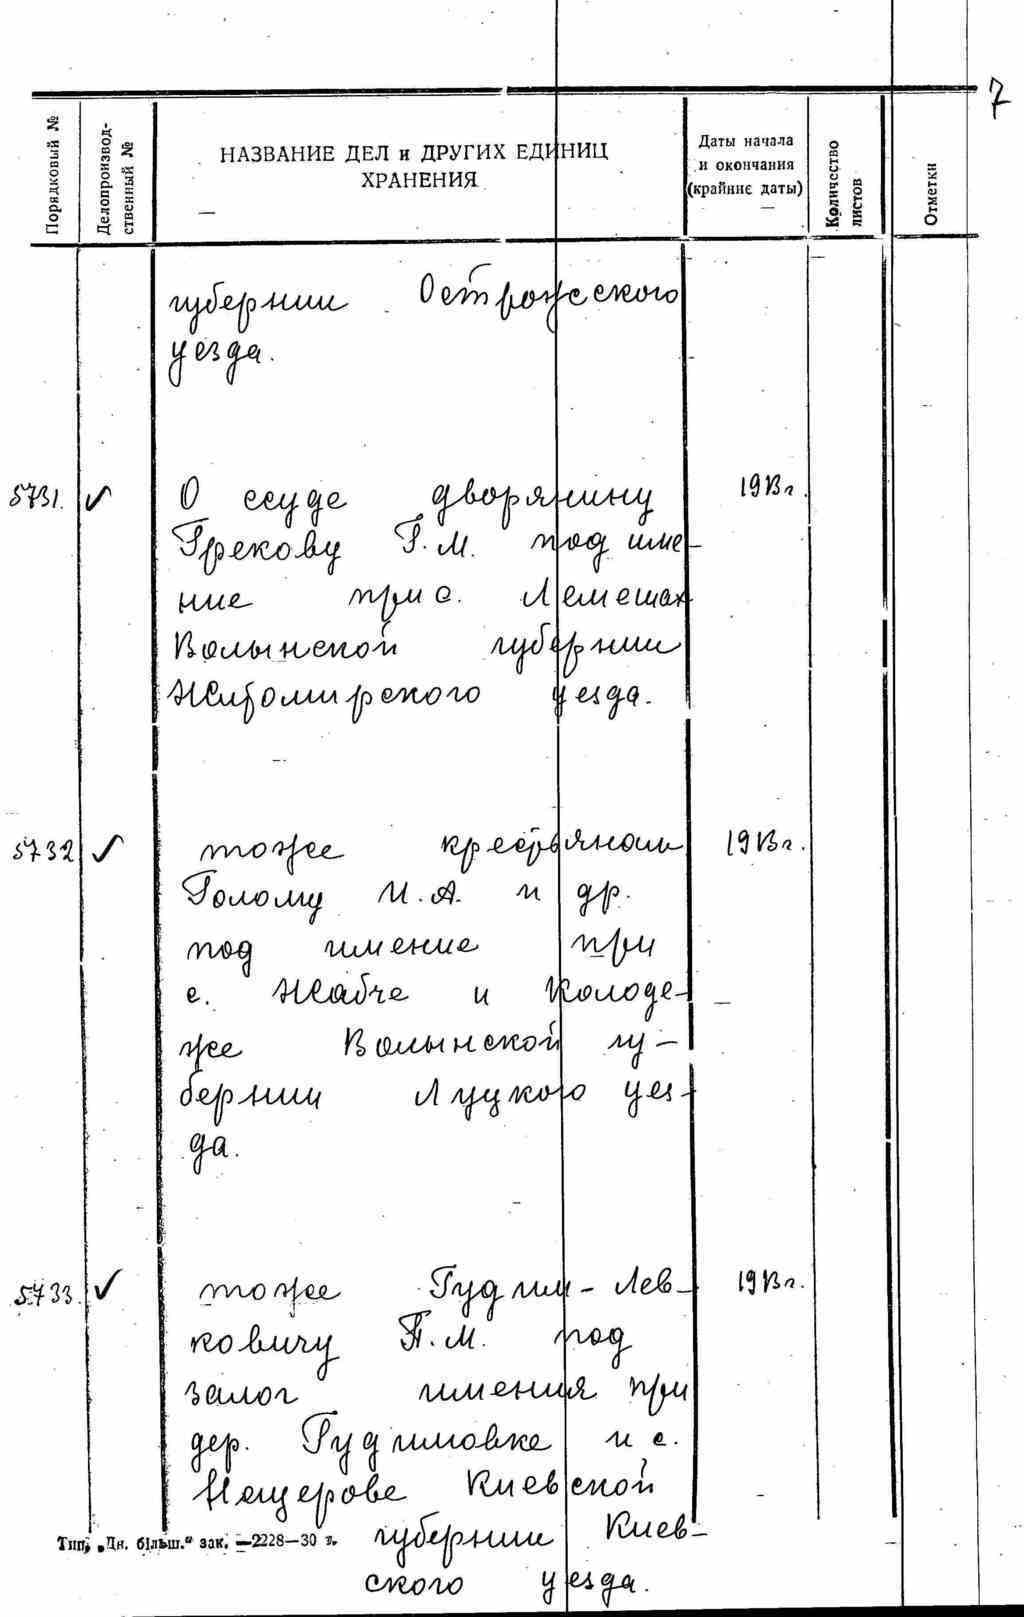 7
Порядковый №
Делопроизвод-
ственный №
НАЗВАНИЕ ДЕЛ и ДРУГИХ ЕДИНИЦ
ХРАНЕНИЯ
Даты начала
и окончания
(крайние даты)
Количество
листов
Отметки
губернии Острожского
уезда.
5731. ✓ О ссуде дворянину 1913 г.
Грекову Г. М. под име-
ние при с. Лемешах
Волынской губернии
Житомирского уезда.
5732 ✓ тоже крестьянам 1913 г.
Голому И. А. и др.
под имение при
с. Жабче и Колоде-
же Волынской гу-
бернии Луцкого уез-
да.
5733. ✓ тоже Гудим-Лев- 1913 г.
ковичу П. М. под
залог имения при
дер. Гудимовке и с.
Нещерове Киевской
губернии Киев-
ского уезда.
Тип. „Дн. більш.“ зак. —2228—30 т.